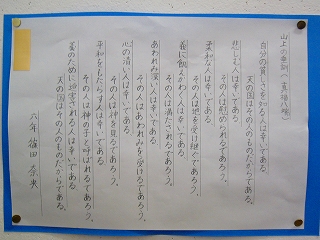 山上の垂訓(真福八端)
自分の貧しさを知る人は幸いである。
天の国はその人のものだからである。
悲しむ人は幸いである。
その人は慰められるであろう。
柔和な人は幸いである。
その人は地を受け継ぐであろう。
義に飢えかわく人は幸いである。
その人は満たされるであろう。
あわれみ深い人は幸いである。
その人はあわれみを受けるであろう。
心の清い人は幸いである。
その人は神を見るであろう。
平和をもたらす人は幸いである。
その人は神の子と呼ばれるであろう。
義のために迫害される人は幸いである。
天の国はその人のものだからである。
六年 篠田 奈央